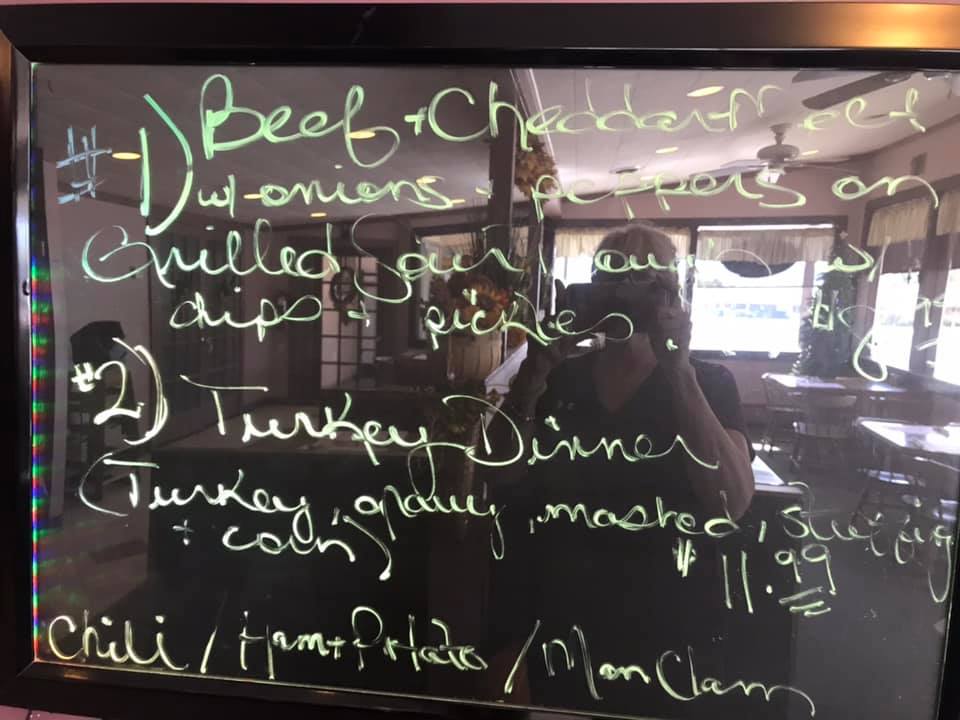 #1) Beef + Cheddar Melt
w/ onions + peppers on
Grilled Sourdough w/
chips + pickles.
#2) Turkey Dinner
(Turkey, gravy, mashed, stuffing
+ corn)
$11.99
Chili / Ham + Potato / Man Clam